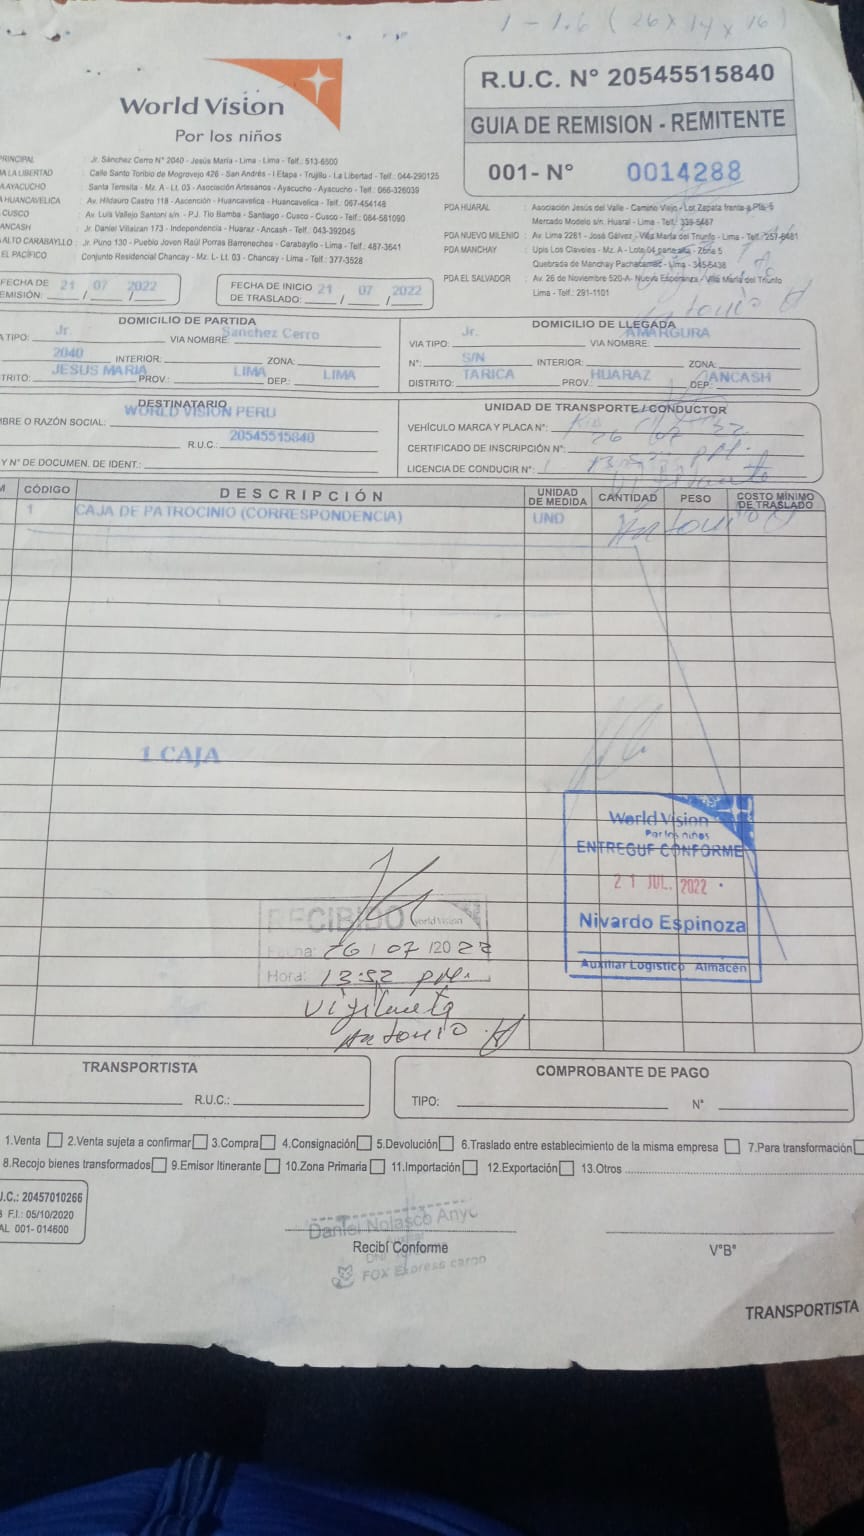 1 - 1.6 (26 x 14 x 16)
World Vision
Por los niños
R.U.C. N° 20545515840
GUIA DE REMISION - REMITENTE
001- N° 0014288
PRINCIPAL Jr. Sánchez Cerro N° 2040 - Jesús María - Lima - Lima - Telf.: 513-6500
LA LIBERTAD : Calle Santo Toribio de Mogrovejo 426 - San Andrés - I Etapa - Trujillo - La Libertad - Telf.: 044-290125
AYACUCHO Santa Teresita - Mz. A - Lt. 03 - Asociación Artesanos - Ayacucho - Ayacucho - Telf.: 066-326039
HUANCAVELICA : Av. Hildauro Castro 118 - Ascención - Huancavelica - Huancavelica - Telf.: 067-454148
CUSCO : Av. Luis Vallejo Santoni s/n - P.J. Tio Bamba - Santiago - Cusco - Cusco - Telf.: 084-581090
ANCASH Jr. Daniel Villaizan 173 - Independencia - Huaraz - Ancash - Telf.: 043-392045
ALTO CARABAYLLO : Jr. Puno 130 - Pueblo Joven Raúl Porras Barrenechea - Carabayllo - Lima - Telf.: 487-3641
EL PACÍFICO Conjunto Residencial Chancay - Mz. L- Lt. 03 - Chancay - Lima - Telf.: 377-3528
PDA HUARAL : Asociación Jesús del Valle - Camino Viejo - Lot Zapata frente a Pta-5
Mercado Modelo s/n. Huaral - Lima - Telf.: 339-5467
PDA NUEVO MILENIO : Av. Lima 2261 - José Gálvez - Villa María del Triunfo - Lima - Telf.: 257-8481
PDA MANCHAY : Upis Los Claveles - Mz. A - Lote 04 parte alta - Zona 5
Quebrada de Manchay Pachacamac - Lima - 345-5438
PDA EL SALVADOR : Av. 26 de Noviembre 520-A- Nueva Esperanza / Villa María del Triunfo
Lima - Telf.: 291-1101
Antonio
FECHA DE EMISIÓN: 21 / 07 / 2022
FECHA DE INICIO DE TRASLADO: 21 / 07 / 2022
DOMICILIO DE PARTIDA
VIA TIPO: Jr. VIA NOMBRE: Sanchez Cerro
2040 INTERIOR: ZONA:
DISTRITO: JESUS MARIA PROV.: LIMA DEP.: LIMA
DOMICILIO DE LLEGADA
VIA TIPO: Jr. VIA NOMBRE: AMARGURA
N°: S/N INTERIOR: ZONA:
DISTRITO: TARICA PROV. HUARAZ DEP. ANCASH
DESTINATARIO
NOMBRE O RAZÓN SOCIAL: WORLD VISION PERU
R.U.C.: 20545515840
Y N° DE DOCUMEN. DE IDENT.:
UNIDAD DE TRANSPORTE / CONDUCTOR
VEHÍCULO MARCA Y PLACA N°:
CERTIFICADO DE INSCRIPCIÓN N°:
LICENCIA DE CONDUCIR N°:
CÓDIGO DESCRIPCIÓN UNIDAD DE MEDIDA CANTIDAD PESO COSTO MÍNIMO DE TRASLADO
1 CAJA DE PATROCINIO (CORRESPONDENCIA) UND
Antonio
1 CAJA
World Vision
Por los niños
ENTREGUE CONFORME
21 JUL. 2022
Nivardo Espinoza
Auxiliar Logístico Almacén
RECIBIDO World Vision
Fecha: 26 / 07 / 2022
Hora: 13:52 pm.
Vigilante
Antonio
TRANSPORTISTA
R.U.C.:
COMPROBANTE DE PAGO
TIPO: N°
1.Venta 2.Venta sujeta a confirmar 3.Compra 4.Consignación 5.Devolución 6.Traslado entre establecimiento de la misma empresa 7.Para transformación
8.Recojo bienes transformados 9.Emisor Itinerante 10.Zona Primaria 11.Importación 12.Exportación 13.Otros
U.C.: 20457010266
F.I.: 05/10/2020
AL 001- 014600
Daniel Nolasco Anyc
Recibí Conforme
FOX Express cargo
V°B°
TRANSPORTISTA